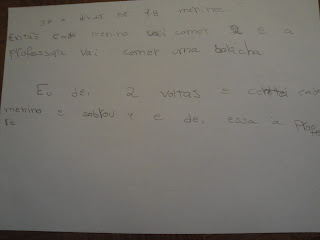 de 18 meninos
Então cada menino vai comer 2 e a
professora vai comer uma bolacha
Eu dei 2 voltas e cada
menino e sobrou 1 e dei essa a